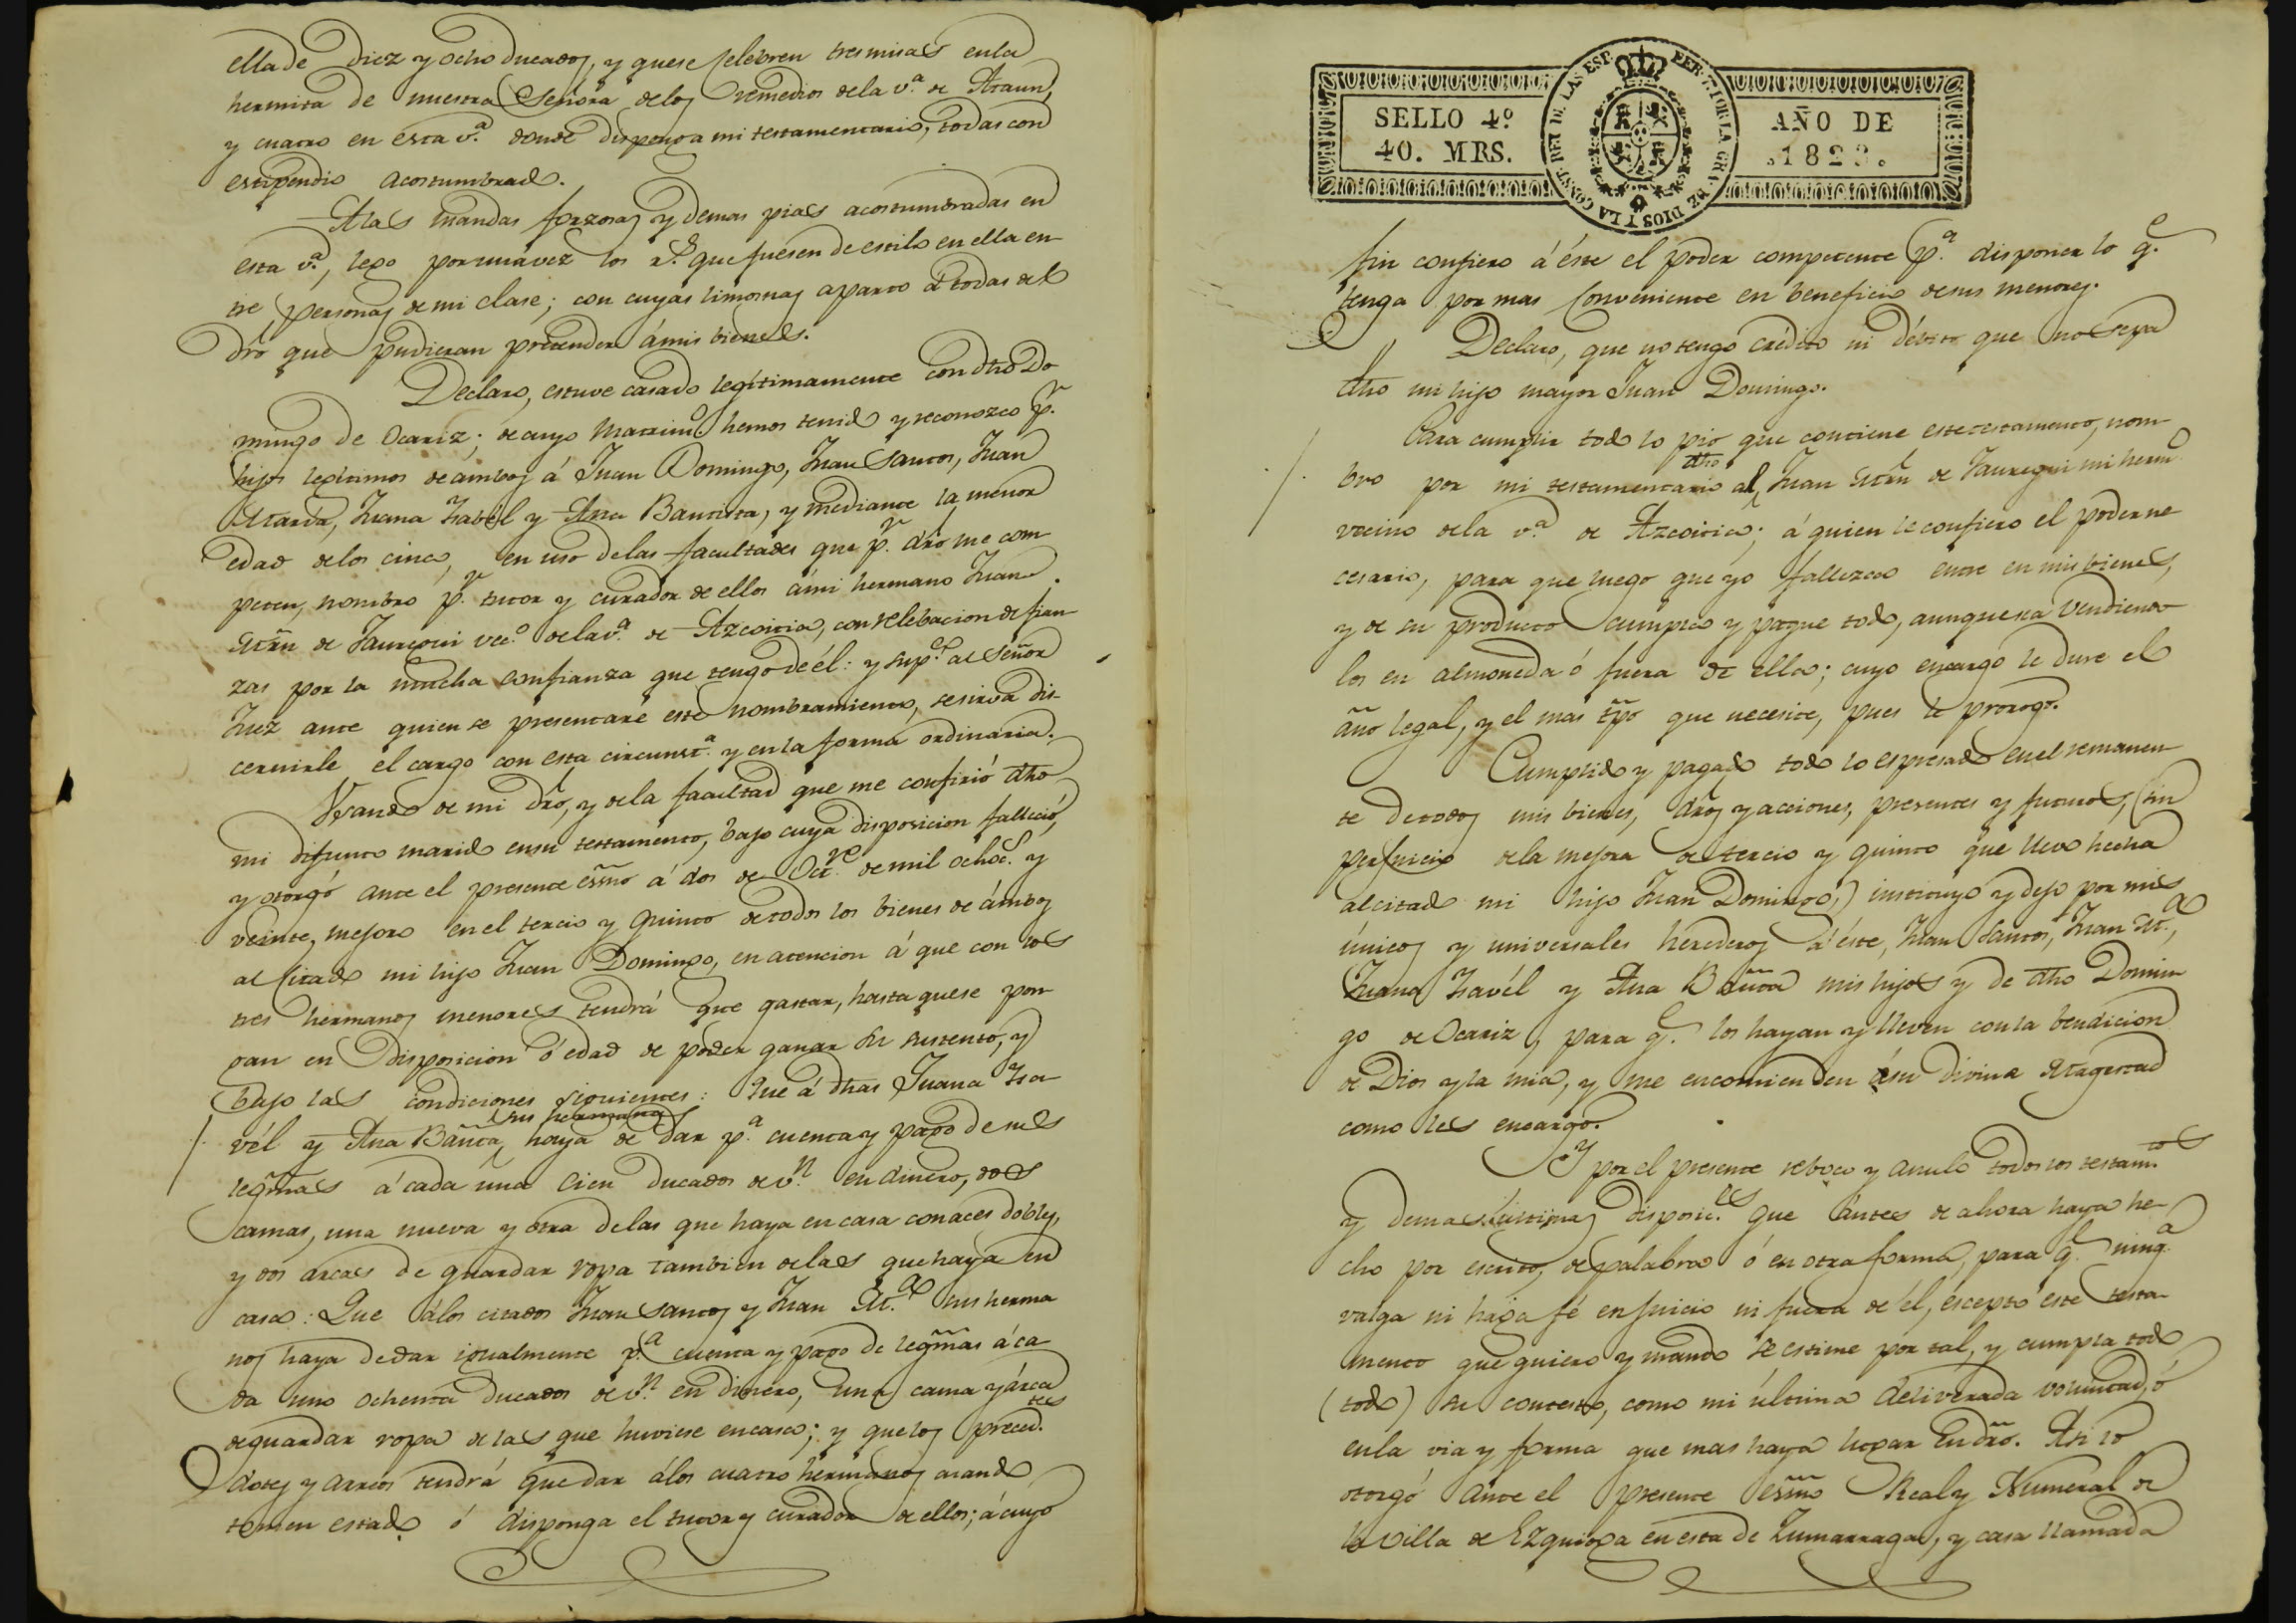 ella de Diez y ocho ducados, y que se celebren tres misas en la
hermita de nuestra Señora de los remedios de la v.ª de Araun,
y cuatro en esta v.ª donde disponga mi testamentario, todas con
estipendio acostumbrado.
A las mandas forzosas y demas pias acostumbradas en
esta v.ª, lego por una vez los r.s que fuesen de estilo en ella en-
tre personas de mi clase; con cuyas limosnas aparto à todas del
dr̃o que pudieran pretender á mis bienes.
Declaro, estuve casado legítimamente con dho Do
mingo de Ocariz; de cuyo Matrim.o hemos tenido y reconozco p.r
hijos legitimos de ambos á Juan Domingo, Juan Santos, Juan
Maria, Juana Isabél y Ana Bautista, y mediante la menor
edad de los cinco, en uso de las facultades que p.r dr̃o me com
peten, nombro p.r tutor y curador de ellos á mi hermano Juan
Mr̃n de Jauregui vec.o de la v.ª de Azcoitia, con relebacion de fian
zas por la mucha confianza que tengo de él: y sup.co al Señor
Juez ante quien se presentare este nombramiento, se sirva dis-
cernirle el cargo con esta circunst.ª y en la forma ordinaria.
Usando de mi dr̃o, y de la facultad que me confirió dho
mi difunto marido en su testamento, bajo cuya disposicion falleció,
y otorgó ante el presente esc̃no á dos de Oct.re de mil ochoc.s y
veinte, mejoro en el tercio y quinto de todos los bienes de ámbos
al citado mi hijo Juan Domingo, en atencion á que con los
tres hermanos menores tendrá que gastar, hasta que se pon
gan en disposicion ó edad de poder ganar su sustento, y
bajo las condiciones siguientes: Que á dhas Juana Isa
sus hermanas
vél y Ana Bañta, haya de dar p.ª cuenta y pago de sus
legm̃as á cada una Cien ducados de v.n en dinero, dos
camas, una nueva y otra de las que haya en casa con aces dobles,
y dos arcas de guardar ropa tambien de las que haya en
casa: Que á los citados Juan Santos y Juan M.ª sus herma
nos haya de dar igualmente p.ª cuenta y pago de legm̃as á ca-
da uno ochenta ducados de v.n en dinero, una cama y árca
de guardar ropa de las que huviese en casa; y que los preced.tes
dotes y arreos tendrá que dar á los cuatro hermanos cuando
tomen estado ó disponga el tutor y curador de ellos; á cuyo
SELLO 4º
40. MRS.
FER. 7. POR LA GRA. DE DIOS Y LA CONST. REY DE LAS ESP.
AÑO DE
1823.
fin confiero á éste el poder competente p.ª disponer lo q.e
tenga por mas conveniente en beneficio de sus menores.
Declaro, que no tengo crédito ni débito que no sepa
dho mi hijo mayor Juan Domingo.
Para cumplir todo lo pio que contiene este testamento, nom-
dho
bro por mi testamentario al Juan Mr̃n de Jauregui mi herm.o
vecino de la v.ª de Azcoitia; á quien le confiero el poder ne
cesario, para que luego que yo fallezca entre en mis bienes,
y de su producto cumpla y pague todo, aunque sea vendiendo
los en almoneda ó fuera de ella; cuyo encargo le dure el
año legal, y el mas tp̃o que necesite, pues le prorogo.
Cumplido y pagado todo lo espresado en el remanen
te de todos mis bienes, dr̃os y acciones, presentes y futuros, (sin
perjuicio de la mejora de tercio y quinto que llevo hecha
al citado mi hijo Juan Domingo,) instituyo y dejo por mis
únicos y universales herederos á éste, Juan Santos, Juan M.ª,
Juana Isavél y Ana Bañta mis hijos y de dho Domin
go de Ocariz, para q.e los hayan y lleven con la bendicion
de Dios y la mia, y me encomienden á su divina Magestad
como les encargo.
Y por el presente reboco y anulo todos los testam.tos
y demas últimas disposic.es que ántes de ahora haya he-
cho por escrito, de palabra ó en otra forma, para q.e ning.ª
valga ni haga fé en juicio ni fuera de él, escepto este testa-
mento que quiero y mando se estime por tal, y cumpla todo
(todo) su contesto, como mi última deliverada voluntad, ó
en la via y forma que mas haya lugar en dr̃o. Asi lo
otorgó ante el presente esc̃no Real y Numeral de
la villa de Ezquioga en esta de Zumarraga, y casa llamada